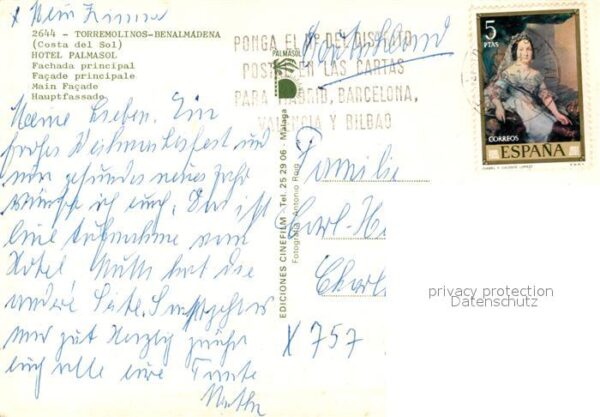 x Mein Zimmer
2644 - TORREMOLINOS-BENALMÁDENA
(Costa del Sol)
HOTEL PALMASOL
Fachada principal
Façade principale
Main Façade
Hauptfassade
PALMASOL
PONGA EL Nº DEL DISTRITO
POSTAL EN LAS CARTAS
PARA MADRID, BARCELONA,
VALENCIA Y BILBAO
Deutschland
5
PTAS
CORREOS
ESPAÑA
Meine Lieben. Ein
frohes Weihnachtsfest und
ein gesundes neues Jahr
wünsche ich euch. Das ist
eine Aufnahme vom
Hotel
die
andere Seite. Sonst geht es
mir gut Herzlich grüßt
euch alle eure Tante
EDICIONES CINEFILM - Tel. 25 29 06 - Málaga
Fotografía: Antonio Roig
Familie
Karl-H
X 757
privacy protection
Datenschutz